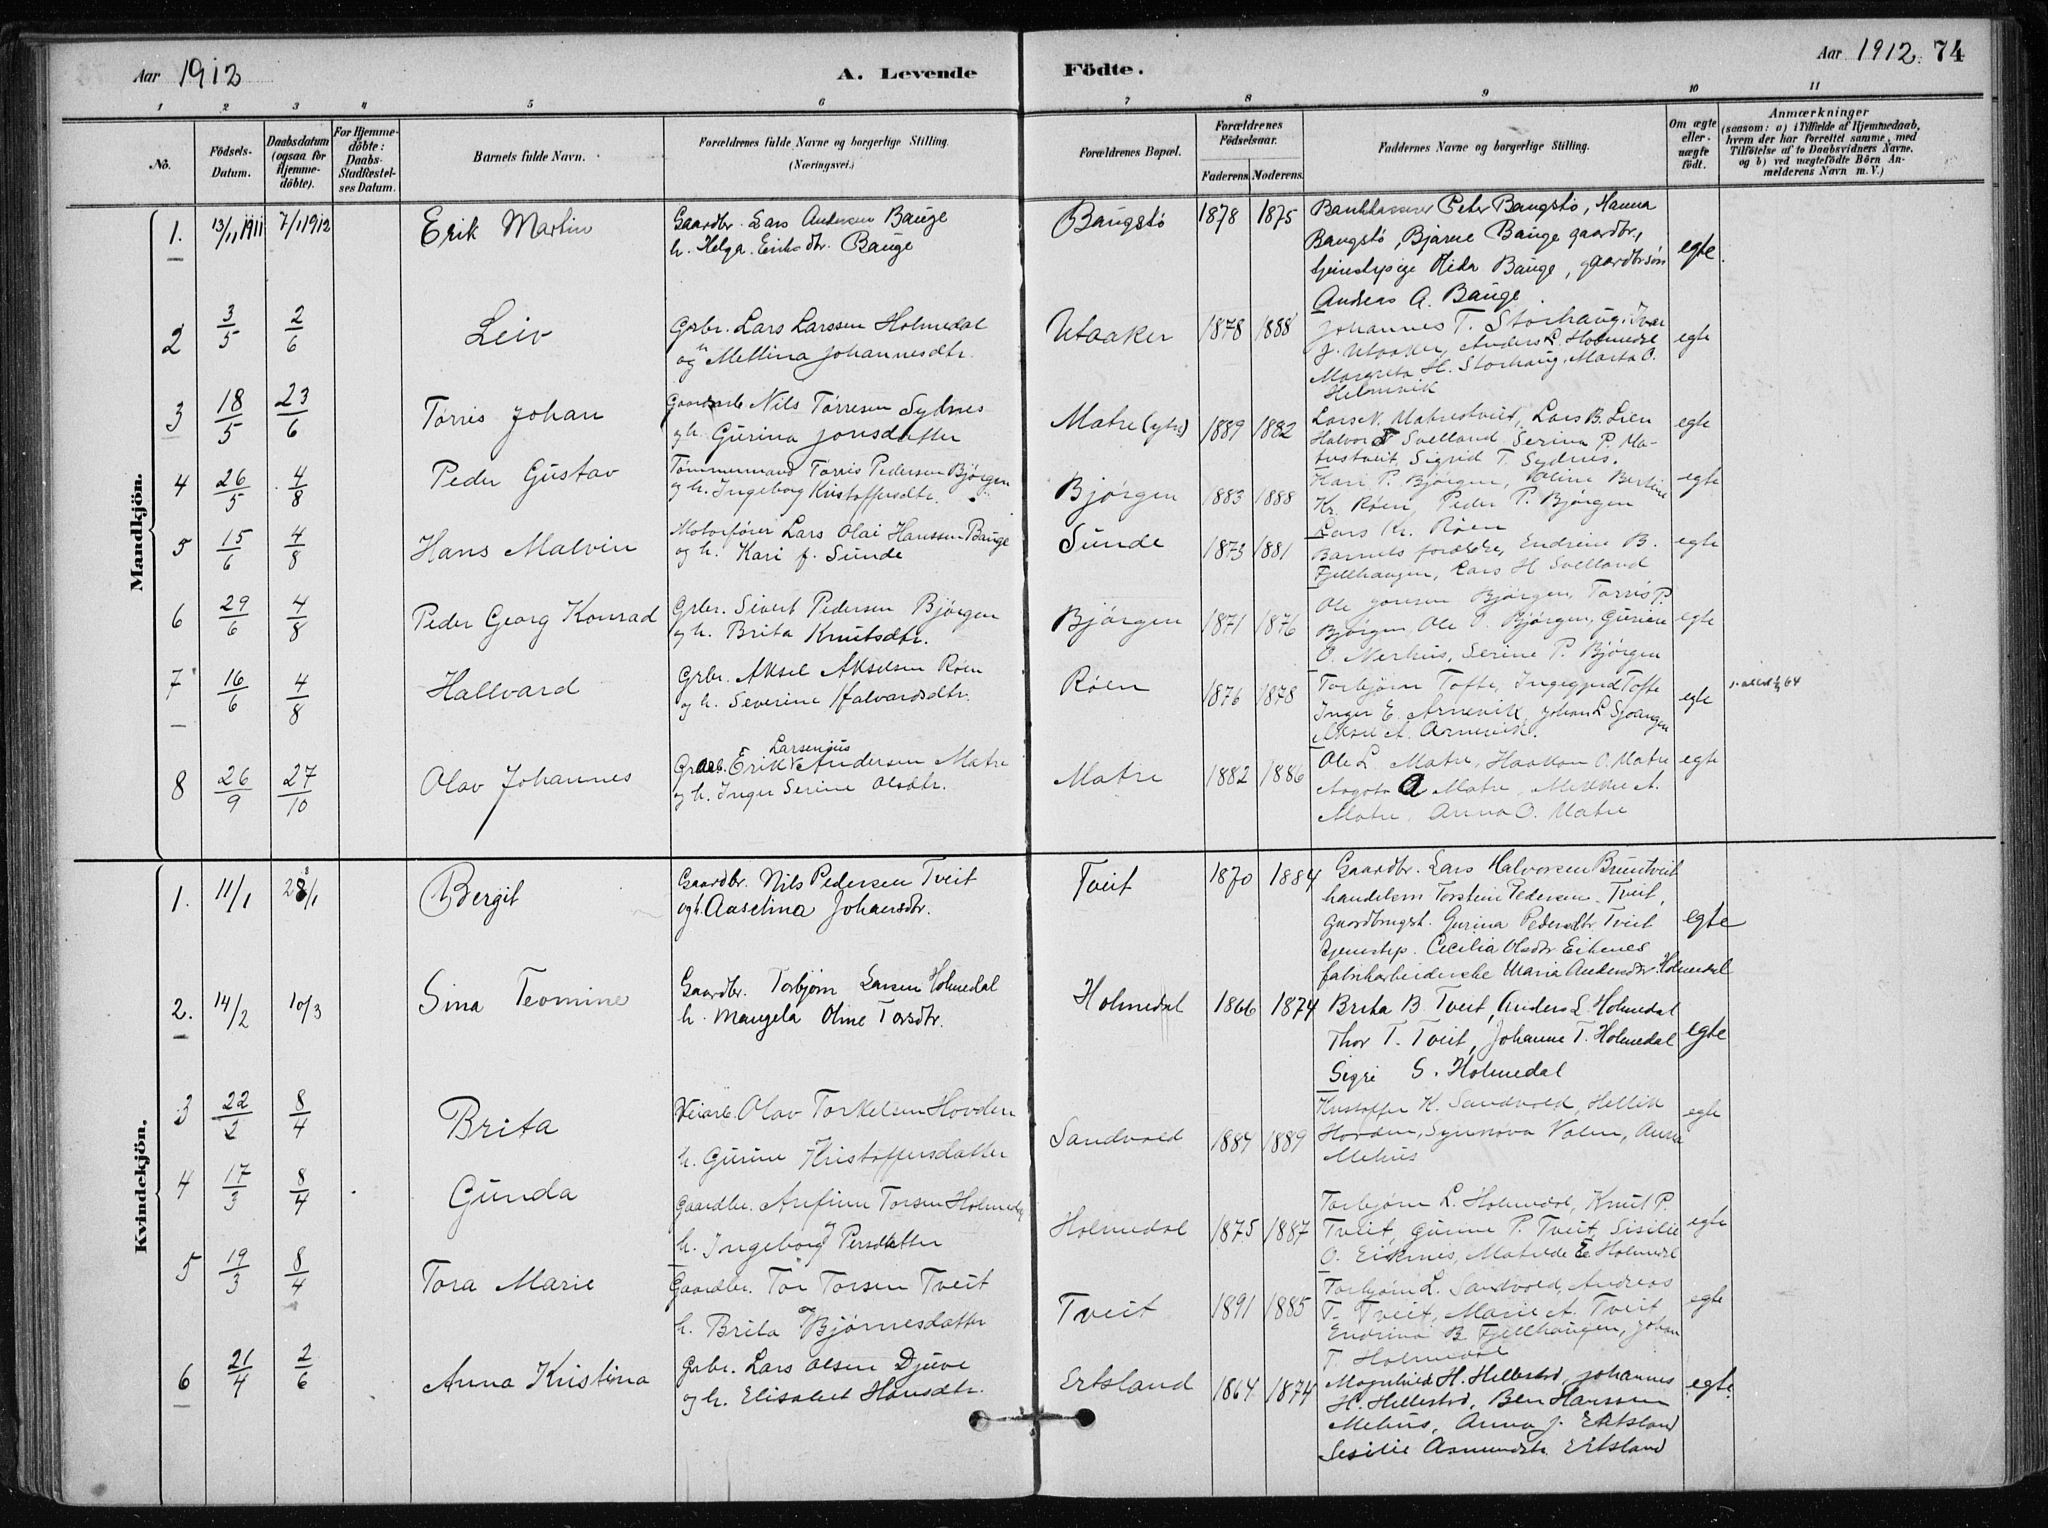 Aar 1912
A. Levende Födte.
Aar 1912. 74
1 2 3 4 5 6 7 8 9 10 11
Nô.
Födsels-
Datum.
Daabsdatum
(ogsaa for
Hjemme-
döbte).
For Hjemme-
döbte:
Daabs-
Stadfæstel-
ses Datum.
Barnets fulde Navn.
Forældrenes fulde Navne og borgerlige Stilling.
(Næringsvei.)
Forældrenes Bopæl.
Forældrenes
Födselsaar.
Faderens. Moderens.
Faddernes Navne og borgerlige Stilling.
Om ægte
eller
uægte
födt.
Anmærkninger
(saasom: a) i Tilfælde af Hjemmedaab,
hvem der har forrettet samme, med
Tilföielse af to Daabsvidners Navne,
og b) ved uægtefödte Börn An-
melderens Navn m. V.)
Mandkjön.
1. 13/11 1911 7/1 1912 Erik Martin
Gaardbr. Lars Andersen Bauge
h. Helga Eriksdtr. Bauge
Baugstø 1878 1875
Bankkasserer Peter Baugstø, Hanna
Baugstø, Bjarne Bauge gaardbr.,
Bauge, gaardbrsøn
Andreas A. Bauge.
egte
2 3/5 2/6 Leiv
Grbr. Lars Larssen Holmedal
og h Mettina Johannesdtr.
Utaaker 1878 1888
Johannes T. Storhaug, Ivar
J. Utaaker, Anders L. Holmedal
Margreta H. Storhaug, Marta O.
Helmvik
egte
3 18/5 23/6 Tørris Johan
Nils Tørresen Sydnes
og h. Gurina Jonsdatter
Matre (ytre) 1889 1882
Lars N. Matrestveit, Lars B. Lien
Halvor T Svelland Serina P. Ma-
trestveit, Sigrid T. Sydnes.
egte
4 26/5 4/8 Peder Gustav
Tømmermand Tørris Pedersen Bjørgen
og h. Ingeborg Kristoffersdtr.
Bjørgen 1883 1888
Kari P. Bjørgen, Oline Bertine
Kr. Røen, Peder P. Bjørgen
Lars Kr. Røen
egte
5 15/6 4/8 Hans Malvin
Motorfører Lars Olai Hanssen Bauge
og h. Kari f. Sunde
Sunde 1873 1881
Barnets forældre, Endreine B.
Fjellhaugen, Lars H Svelland
egte
6 29/6 4/8 Peder Georg Konrad
Grbr. Sivert Pedersen Bjørgen
og h. Brita Knutsdtr.
Bjørgen 1871 1876
Ole Jonsen Bjørgen, Tørris P.
Bjørgen, Ole P. Bjørgen, Gurine
O. Nerhus, Serine P. Bjørgen
egte
7 16/6 4/8 Hallvard
Grbr. Aksel Akselsen Røen
og h. Severine Halvardsdtr.
Røen 1876 1878
Torbjørn Tofte, Ingegjerd Tofte
Inger E. Arnevik, Johan L Sjoangen
Aksel A. Arnevik.
egte
8 26/9 27/10 Olav Johannes
Larsenius
Erik Andersen Matre
og h. Inger Serine Olsdtr.
Matre 1882 1886
Ole L. Matre, Haakon O. Matre
Aagota A Matre, Mikkel A.
Matre, Anna O. Matre
egte
Kvindekjön.
1. 11/1 28/1 Bergit
Gaardbr. Nils Pedersen Tveit
og h. Anselina Johansdtr.
Tveit 1870 1884
Gaardbr. Lars Halvorsen Bruntveit
handelsm Torstein Pedersen Tveit,
Gurina Pedersdtr Tveit
tjenestep. Cecilia Olsdtr Eiknes
fabrikarbeiderske Maria Andersdtr. Holmedal
egte
2. 14/2 10/3 Sina Teomine
Gaardbr. Torbjørn Larsen Holmedal
h. Mangela Oline Torsdtr.
Holmedal 1866 1874
Brita B. Tveit, Anders L. Holmedal
Thor T. Tveit, Johanne T. Holmedal
Sigri S. Holmedal
egte
3 22/2 8/4 Brita
Veiarb. Olav Torkelsen Hovden
h. Gurine Kristoffersdatter
Sandvold 1884 1889
Kristoffer K. Sandvold, Hellik
Hovden, Synnøva Valen, Anna
Mehus
egte
4 17/3 8/4 Gunda
Gaardbr. Anfinn Torsen Holmedal
h. Ingeborg Persdatter
Holmedal 1875 1887
Torbjørn L. Holmedal, Knut P.
Tveit, Gurine P. Tveit, Sisilie
O. Eiknes, Matilde E Holmedal
egte
5 19/3 8/4 Tora Marie
Gaardbr. Tor Torsen Tveit
h. Brita Bjørnesdatter
Tveit 1891 1885
Torbjørn L. Sandvold, Andreas
T. Tveit, Marie A. Tveit,
Endrina B Fjellhaugen, Johan
T. Holmedal
egte
6 21/4 2/6 Anna Kristina
Grbr. Lars Olsen Djuve
og h. Elisabet Hansdtr.
Ertsland 1864 1874
Magnhild H. Hellestø, Johannes
H. Hellestø, Ben Hanssen
Mehus, Anna J. Ertsland
Sesilie Asmundsdtr. Ertsland
egte